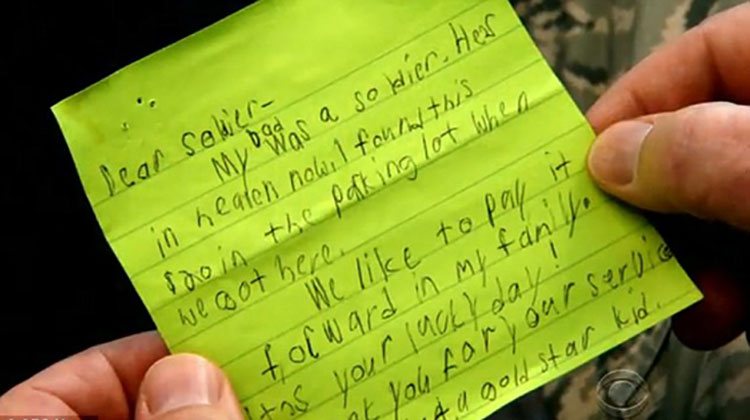 Dear soldier-
My dad was a soldier. Hes
in heaven now. I found this
$20 in the parking lot when
we got here.
We like to pay it
forward in my family.
Its your lucky day!
you for your service
a gold star kid.